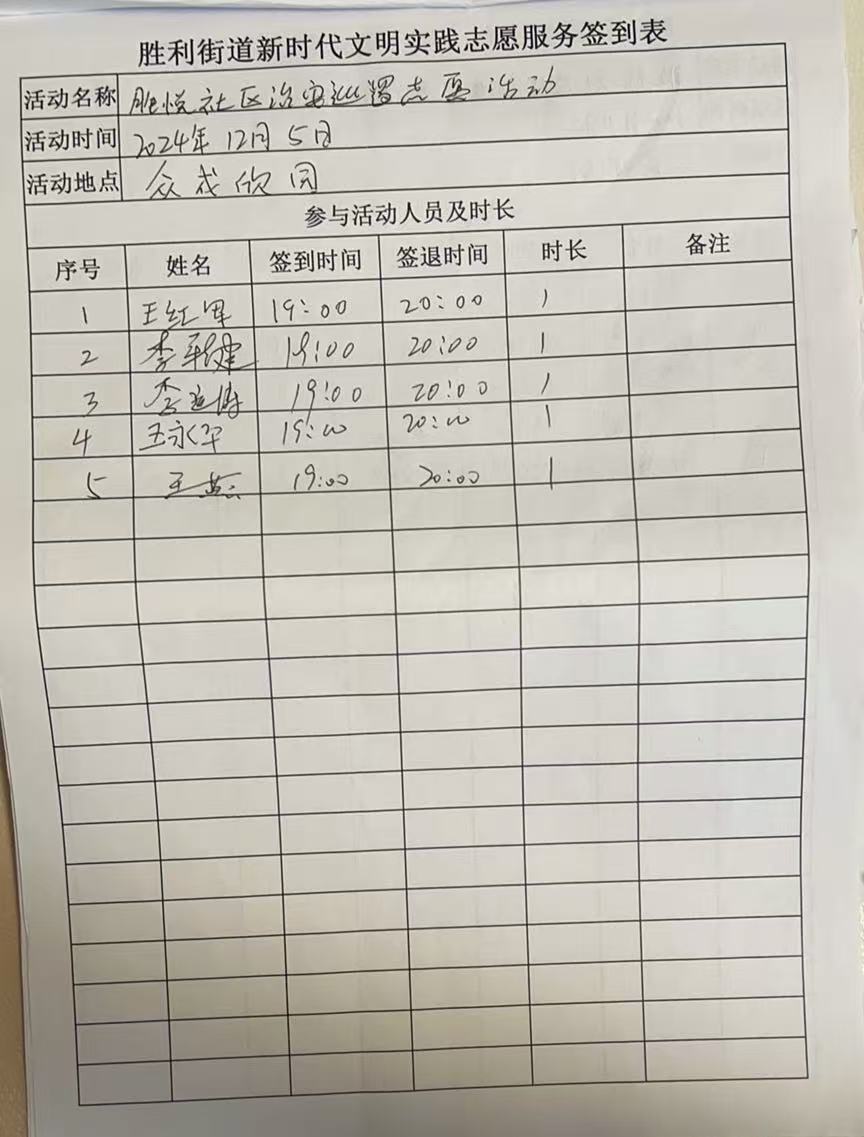 胜利街道新时代文明实践志愿服务签到表
活动名称 胜悦社区治安巡逻志愿活动
活动时间 2024年12月5日
活动地点 众成欣园
参与活动人员及时长
序号 姓名 签到时间 签退时间 时长 备注
1 王红军 19:00 20:00 1
2 李 19:00 20:00 1
3 李 19:00 20:00 1
4 王永军 19:00 20:00 1
5 王 19:00 20:00 1